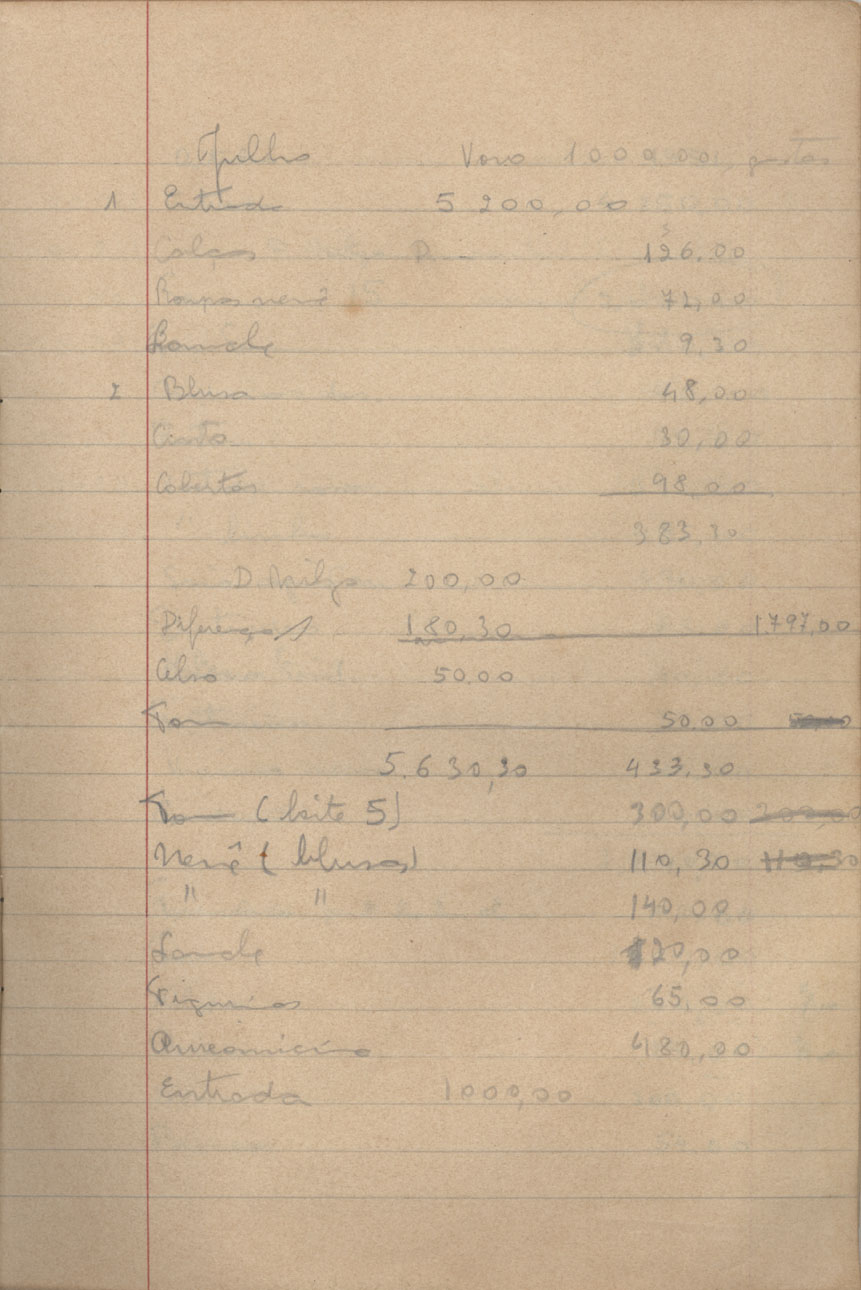 Julho Vovo 1000,00,
1 Entrada 5 200,00
Calças D — 126,00
Roupas nenê 72,00
Lanche 9,30
2 Blusa 48,00
Cinto 30,00
Cobertas 98,00
383,30
D. 200,00
Diferença 180,30 1.797,00
Celso 50.00
50.00
5.630,30 433,30
(leite 5) 300,00 200,00
Nenê (blusas) 110,30 110,30
" " 140,00
Lanche 120,00
65,00
480,00
Entrada 1000,00